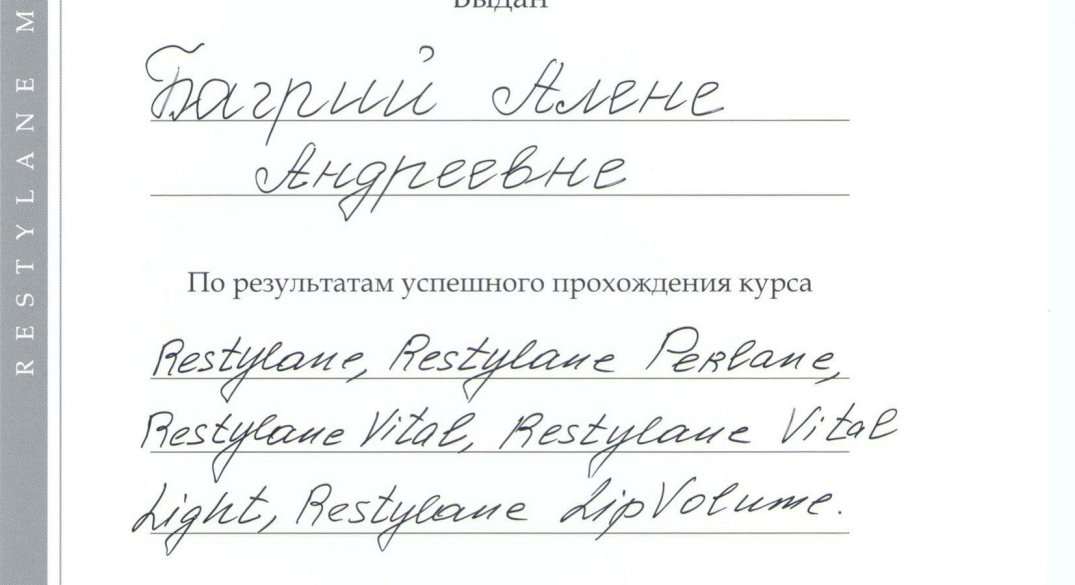 Выдан
Багрий Алене
Андреевне
По результатам успешного прохождения курса
Restylane, Restylane Perlane,
Restylane Vital, Restylane Vital
Light, Restylane Lip Volume.
RESTYLANE M